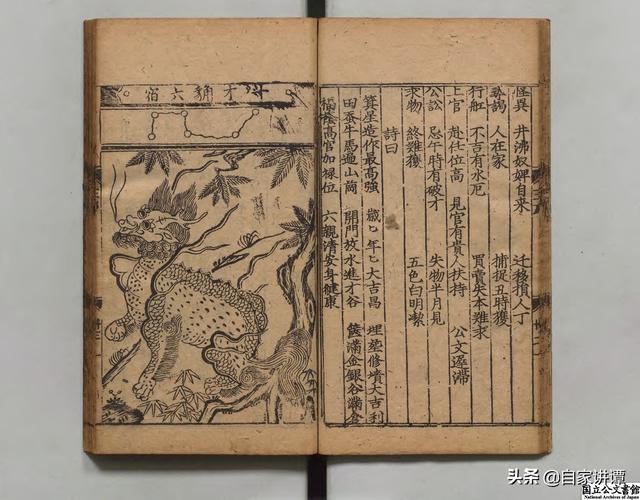 怪異 井沸奴婢自来 迁移損人丁
人在家 捕捉丑時獲
行舡 不吉有水厄 買賣失本難求
上官 赴任位高 見官有貴人扶持 公文逐滯
公訟 忌午時有破才 失物半月見
求物 終难獲 五色白明潔
詩曰
箕星造作最高強 歲〻年〻大吉昌 埋塟修墳大吉利
田蚕牛馬遍山崗 開門放水進才谷 滿金銀谷滿倉
福蔭高官加禄位 六親清安身健康
六宿
头条 @自家讲谭
国立公文書館
National Archives of Japan